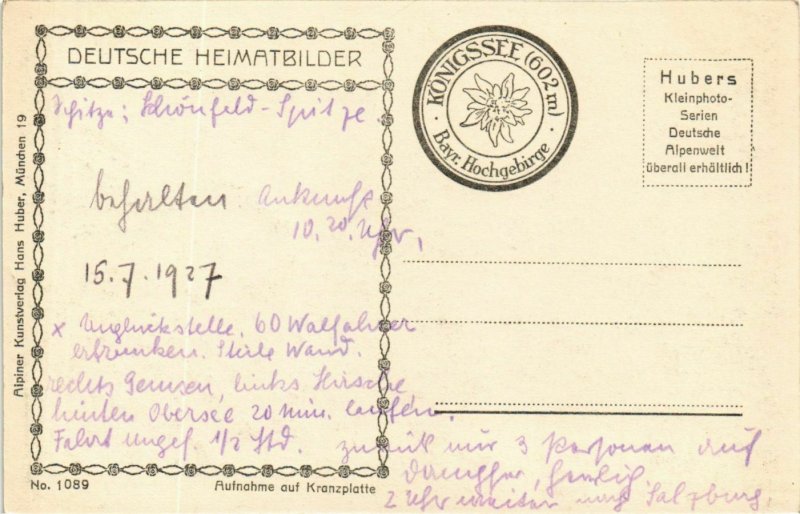 DEUTSCHE HEIMATBILDER
Spitze: Schönfeld-Spitze.
behalten. Ankunft
10.20 Uhr,
15.7.1927
x Unglückstelle. 60 Walfahrer
ertrunken. Steile Wand.
rechts Gemsen, links Hirsche
hinten Obersee 20 min. laufen.
Fahrt ungef. 1/2 Std.
zurück nur 3 Personen auf
Dampfer, herrlich
2 Uhr weiter nach Salzburg.
KÖNIGSSEE (602 m)
· Bayr. Hochgebirge ·
Hubers
Kleinphoto-
Serien
Deutsche
Alpenwelt
überall erhältlich!
Alpiner Kunstverlag Hans Huber, München 19
No. 1089
Aufnahme auf Kranzplatte